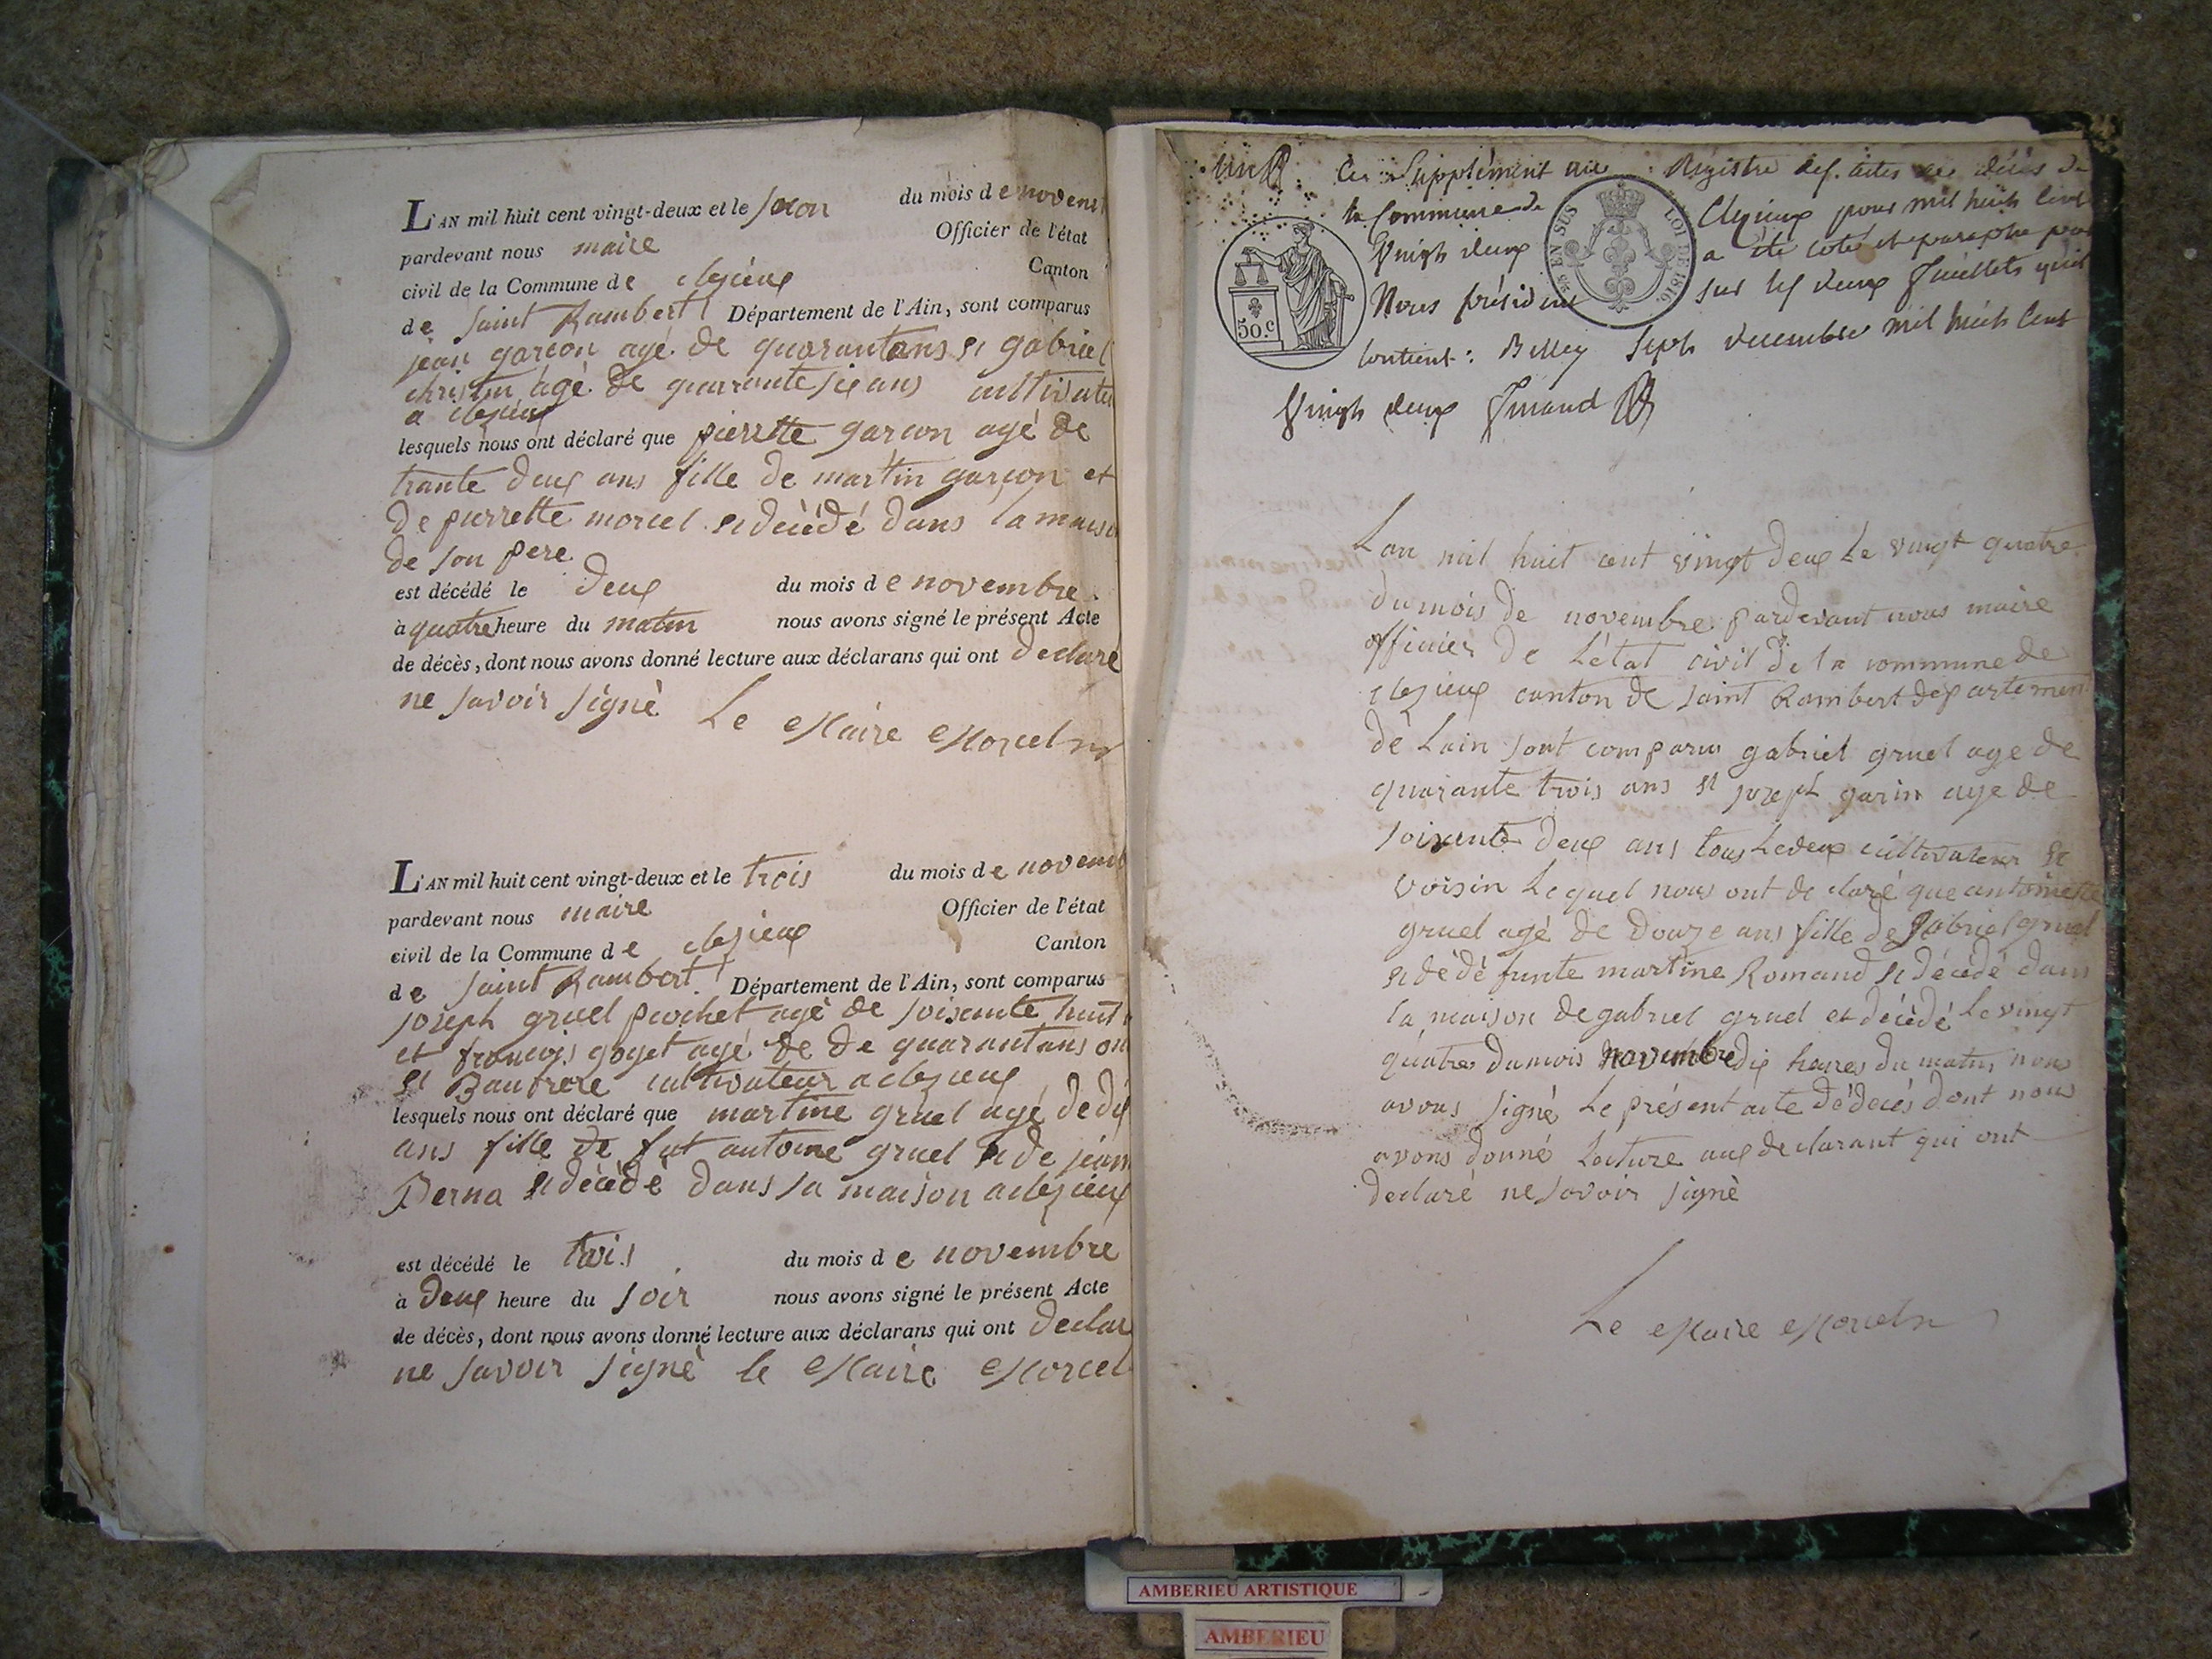 L'AN mil huit cent vingt-deux et le du mois de novem
pardevant nous maire Officier de l'état
civil de la Commune de clezieux Canton
de Saint Rambert Département de l'Ain, sont comparus
jean garcon agé de quarantans et gabriel
christin agé de quarante six ans cultivate
a clezieux
lesquels nous ont déclaré que pierrette garcon agé de
trante deux ans fille de martin garçon et
de pierrette morcel et décédé dans la maiso
de son pere
est décédé le deux du mois de novembre
à quatre heure du matin nous avons signé le présent Acte
de décès, dont nous avons donné lecture aux déclarans qui ont declaré
ne savoir signé Le Maire Morcel
L'AN mil huit cent vingt-deux et le trois du mois de novemb
pardevant nous maire Officier de l'état
civil de la Commune de clezieux Canton
de Saint Rambert Département de l'Ain, sont comparus
joseph gruel pochet agé de soixante huit
et francois goyet agé de de quarantans on
et Baufrere cultivateur a clezieux
lesquels nous ont déclaré que martine gruel agé de dix
ans fille de fut antoine gruel et de jean
Perna et décèdè dans sa maison a clezieux
est décédé le trois du mois de novembre
à deux heure du soir nous avons signé le présent Acte
de décès, dont nous avons donné lecture aux déclarans qui ont declar
ne savoir signé le Maire Morcel
un Ce Supplément au Régistre des actes de décès de
la Commune de Clezieux pour mil huit Cent
Vingt deux a été coté et paraphé par
Nous président sur les deux feuillets qu'il
Contient: Belley Sept decembre mil huit Cent
Vingt deux
EN SUS LOI DE 1816.
50.c
Lan mil huit cent vingt deux Le vingt quatre
du mois de novembre pardevant nous maire
officier de Létat civil de la commune de
clezieux canton de saint Rambert departement
de Lain sont comparu gabriel gruel age de
quarante trois ans et joseph garin age de
soixante deux ans tous Ledeux cultivateur et
voisin Lequel nous ont declaré que antoinette
gruel agé de douze ans fille de gabriel gruel
et dédéfunte martine Romand et décédé dans
la maison de gabriel gruel et décédé Le vingt
quatre du mois novembre dix heures du matin nous
avons signé Le présent acte dédecés dont nous
avons donné Lecture aux declarant qui ont
declaré ne savoir signé
Le Maire Morcel
AMBERIEU ARTISTIQUE
AMBERIEU